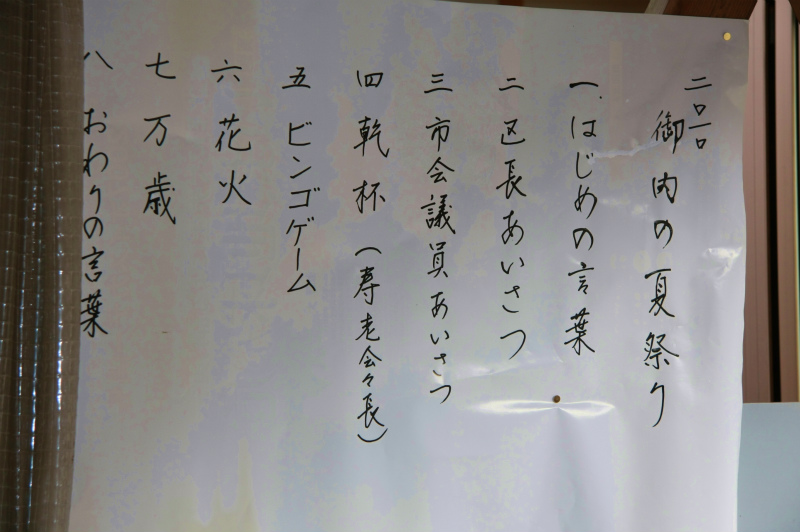 二〇一〇
御内の夏祭り
一、はじめの言葉
二 区長あいさつ
三 市会議員あいさつ
四 乾杯（寿老会々長）
五 ビンゴゲーム
六 花火
七 万歳
八 おわりの言葉